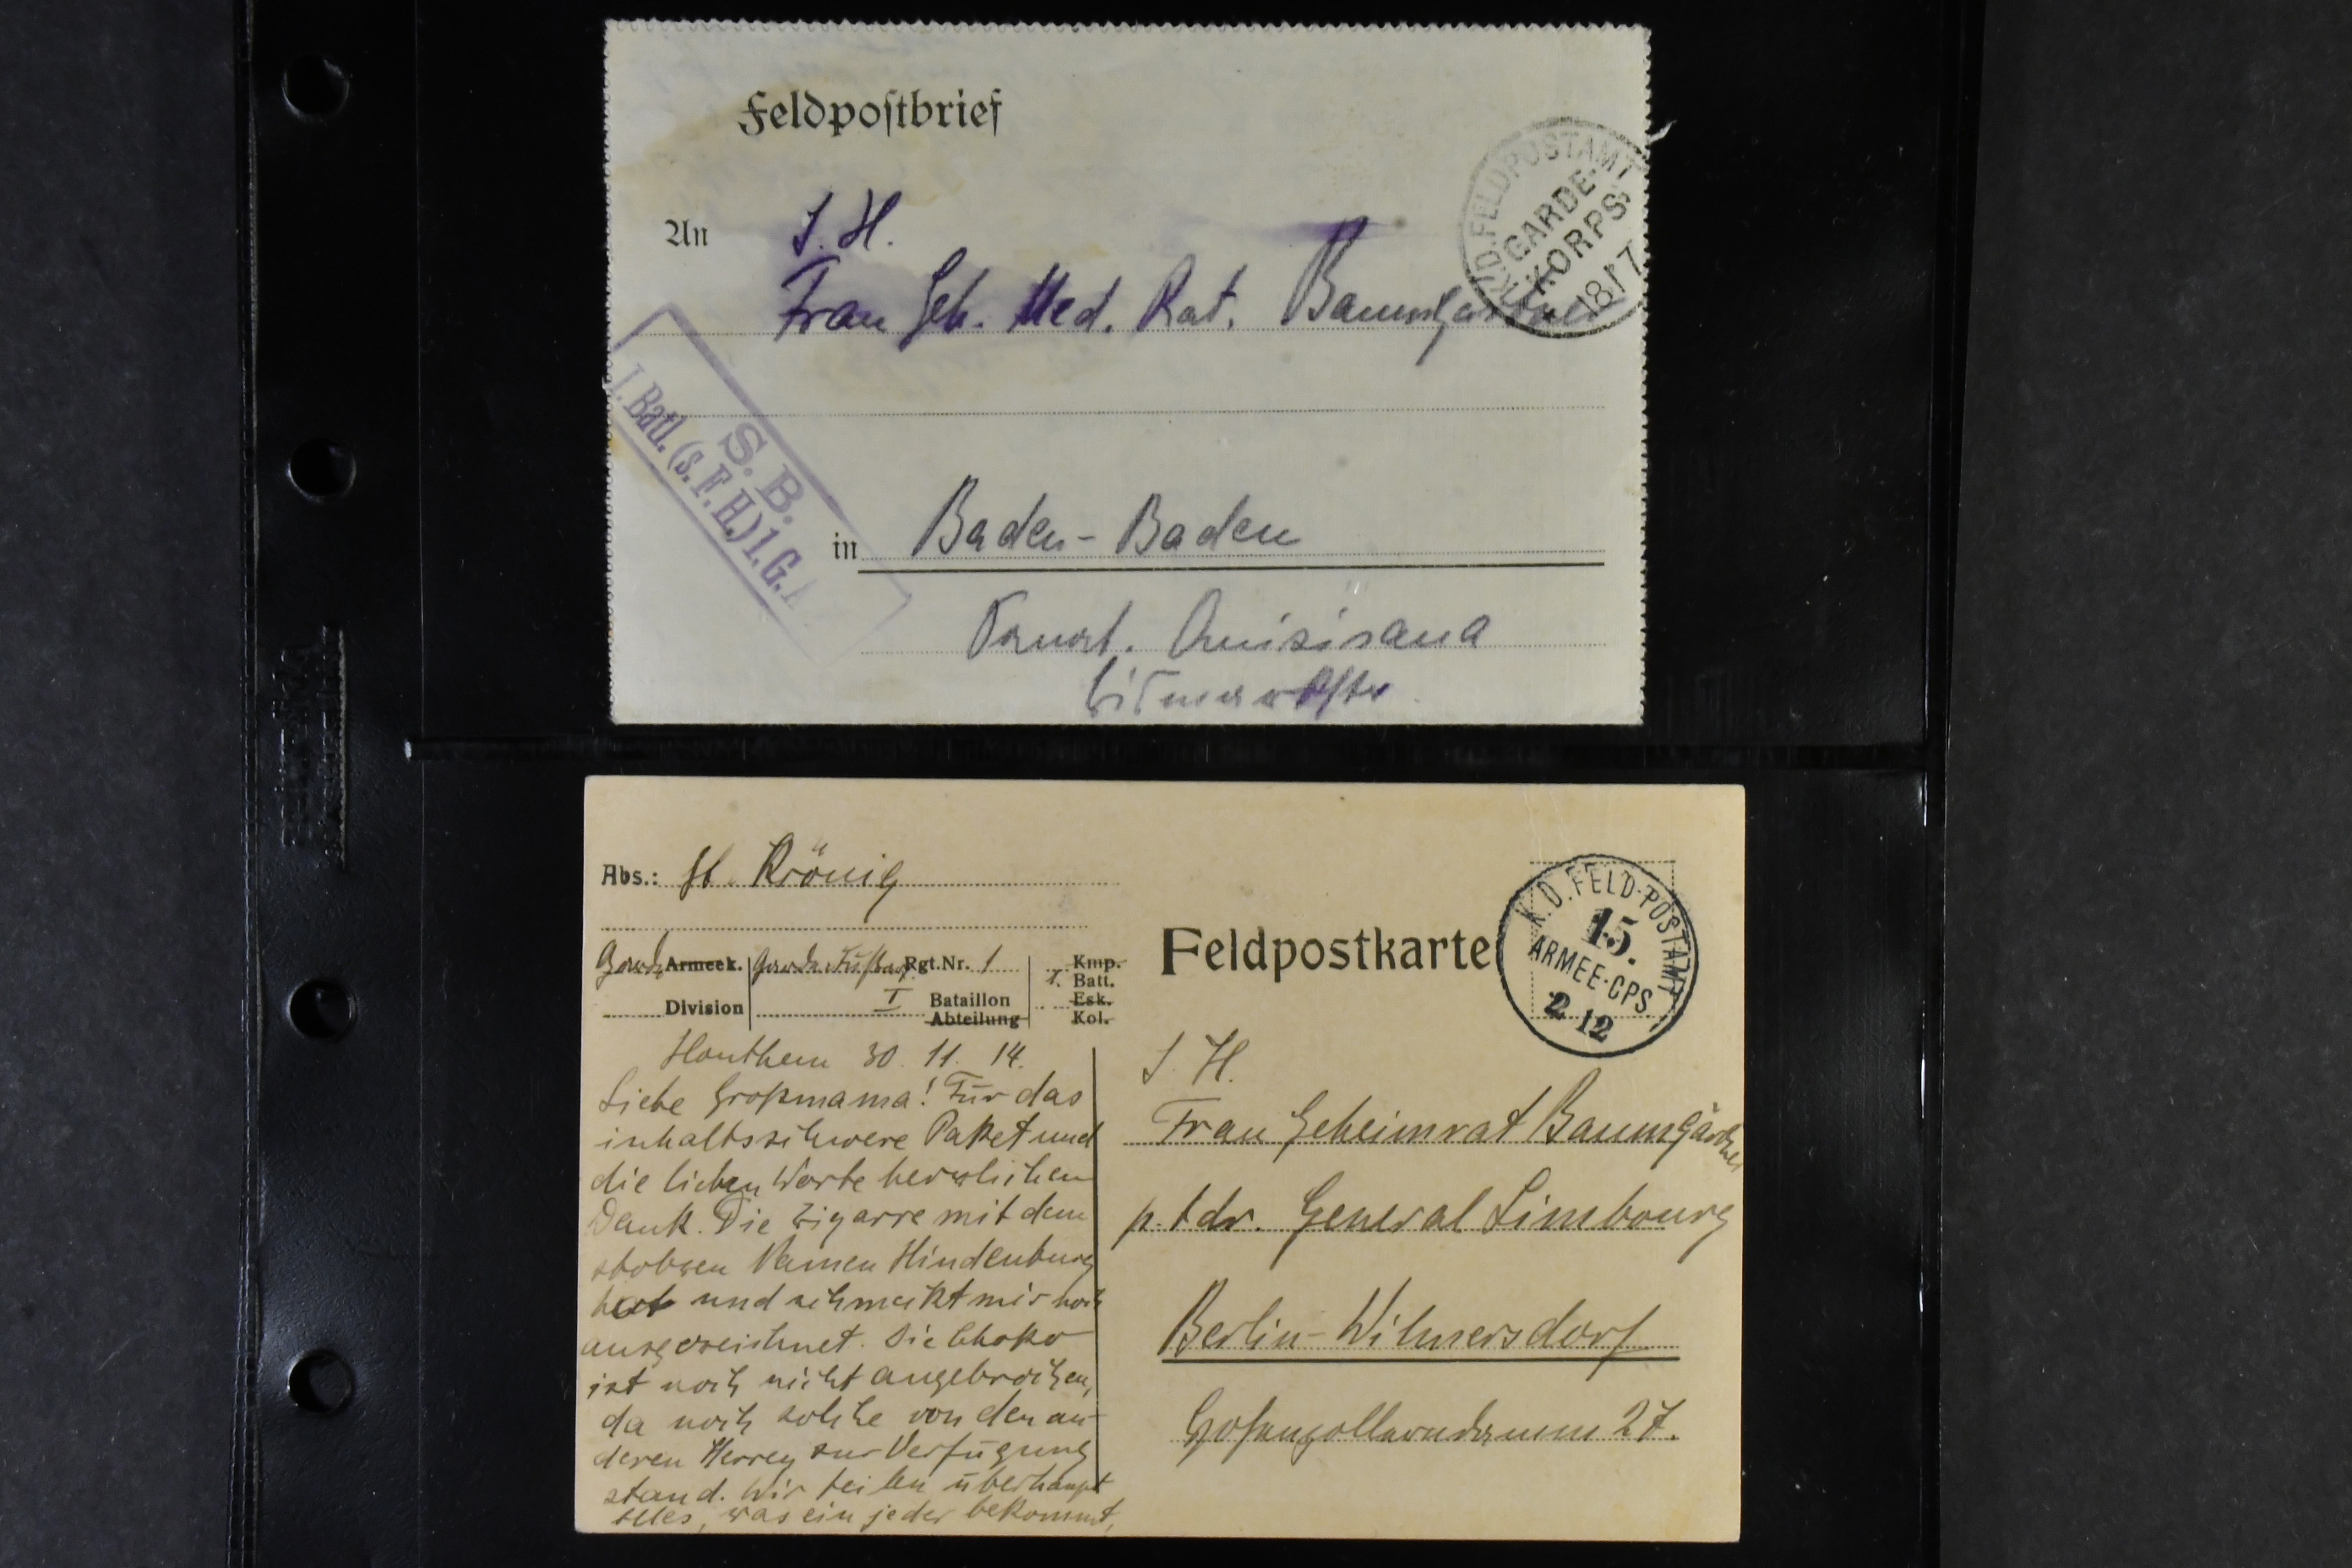 Feldpostbrief
K.D. FELDPOSTAMT
GARDE-
KORPS
18/7
An I. H.
Frau Geh. Med. Rat. Baumgärtner
S. B.
I. Batl. (s. F. H.) 1. G.
in Baden-Baden
Quisisana
Abs.: Krönig
Garde Armeek. Garde Fußa Rgt.Nr. 1 Kmp.
1. Batt.
Division I Bataillon Esk.
Abteilung Kol.
Feldpostkarte
K.D. FELD-POSTAMT
15.
ARMEE-CPS.
2 12
Houthem 30. 11. 14.
Liebe Großmama! Für das
inhaltsschwere Paket und
die lieben Worte herzlichen
Dank. Die Zigarre mit dem
stolzen Namen Hindenburg
hat und schmeckt mir noch
ausgezeichnet. Die Choko
ist noch nicht angebrochen,
da noch solche von den an-
deren Herren zur Verfügung
stand. Wir teilen überhaupt
alles, was ein jeder bekommt,
I. H.
Frau Geheimrat Baumgärtner
p. Adr. General Limbourg
Berlin-Wilmersdorf
Hohenzollerndamm 27.